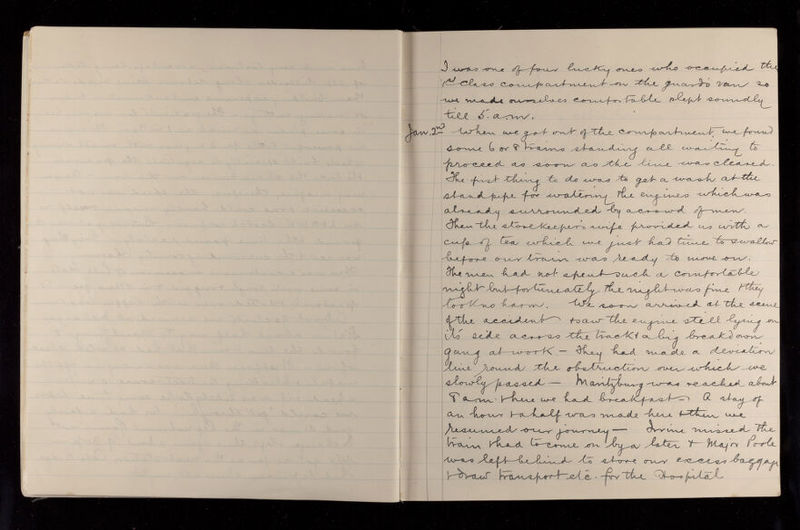 I was one of four lucky ones who occupied the
1st class compartment on the guard's van so
we made ourselves comfortable & slept soundly
till 5. a.m.
Jan. 2nd When we got out of the compartment, we found
some 6 or 8 trains standing all waiting to
proceed as soon as the line was cleared.
The first thing to do was to get a wash at the
stand pipe for watering the engines which was
already surrounded by a crowd of men.
Then the storekeeper's wife provided us with a
cup of tea which we just had time to swallow
before our train was ready to move on.
The men had not spent such a comfortable
night but fortunately the night was fine & they
took no harm. We soon arrived at the scene
of the accident & saw the engine still lying on
its side across the track & a big breakdown
gang at work - They had made a deviation
line round the obstruction over which we
slowly passed - Maritzburg was reached about
8 a.m. & here we had breakfast. A stay of
an hour & a half was made here & then we
resumed our journey - Irvine missed the
train & had to come on by a later & Major Poole
was left behind to store our excess baggage
& draw transport etc. for the Hospital